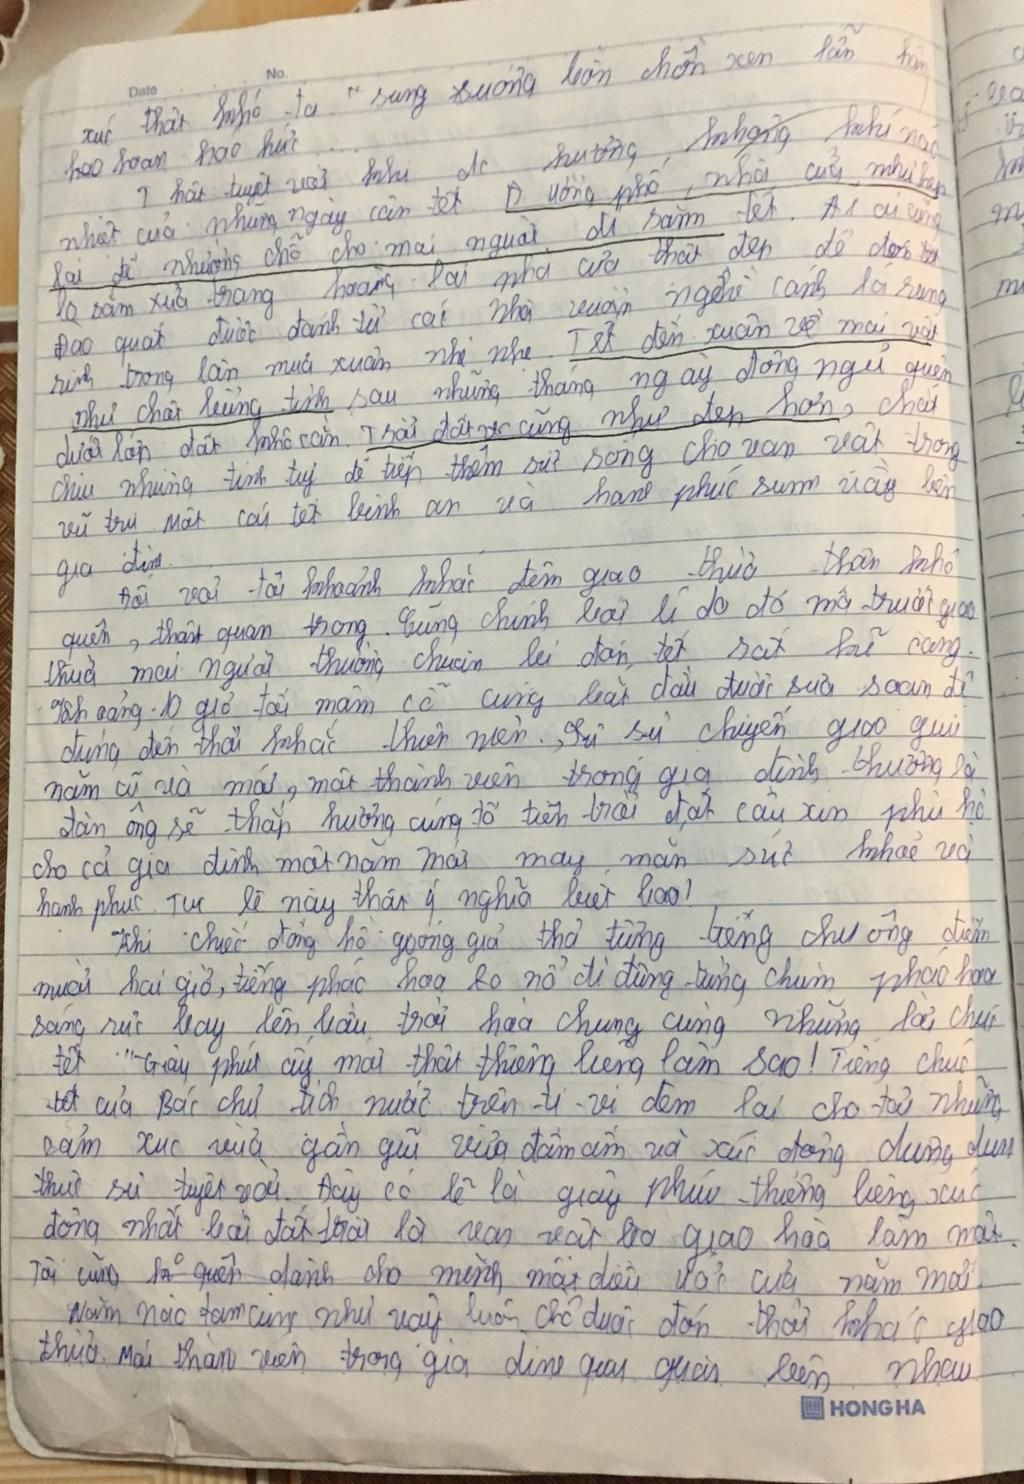 Date No.
xúc thật khó tả "sung sướng bồn chồn xen lẫn hân
hao hoan háo hức ...
Thật tuyệt vời khi dc hưởng không khí náo
nhiệt của những ngày cận tết. Đường phố, nhà cửa, như hẹp
lại để nhường chỗ cho mọi người đi sắm tết. Ai ai cũng
lo sắm xửa trang hoàng lại nhà cửa thật đẹp để đón tết
Đào quất được đánh từ các nhà vườn nghề cánh lá rung
rinh trong làn mưa xuân nhè nhẹ. Tết đến xuân về mọi vật
như chợt bừng tỉnh sau những tháng ngày đông ngủ quên
dưới lớp đất khô cằn. Trời đất cũng như đẹp hơn, chắt
chiu những tinh tuý để tiếp thêm sức sống cho vạn vật trong
vũ trụ một cái tết bình an và hạnh phúc sum vầy bên
gia đình.
Đối với tôi khoảnh khắc đêm giao thừa thân khó
quên, thật quan trọng. Cũng chính bởi lí do đó mà trước giao
thừa mọi người thường chuẩn bị đón tết rất kĩ càng.
Khoảng 10 giờ tối mâm cỗ cúng bắt đầu được sửa soạn để
đúng đến thời khắc thiên niên. Sự chuyển giao giữa
năm cũ và mới, một thành viên trong gia đình thường là
đàn ông sẽ thắp hương cúng tổ tiên trời đất cầu xin phù hộ
cho cả gia đình một năm mới may mắn sức khoẻ và
hạnh phúc. Tục lệ này thật ý nghĩa biết bao!
Khi chiếc đồng hồ gõ thả từng tiếng chuông điểm
mười hai giờ, tiếng pháo hoa nổ đì đùng từng chùm pháo hoa
sáng rực bay lên bầu trời hoà chung cùng những lời chúc
tết "Giây phút ấy mới thật thiêng liêng làm sao! Tiếng chúc
tết của Bác chủ tịch nước trên ti-vi đem lại cho tôi những
cảm xúc vừa gần gũi vừa đầm ấm và xúc động
thực sự tuyệt vời. Đây có lẽ là giây phút thiêng liêng xúc
động nhất bởi đất trời là vạn vật giao hoà làm một.
Tôi cũng ko quên dành cho mình một điều ước của năm mới.
Năm nào tôi cũng như vậy luôn chờ được đón thời khắc giao
thừa. Mỗi thành viên trong gia đình quây quần bên nhau
HONG HA